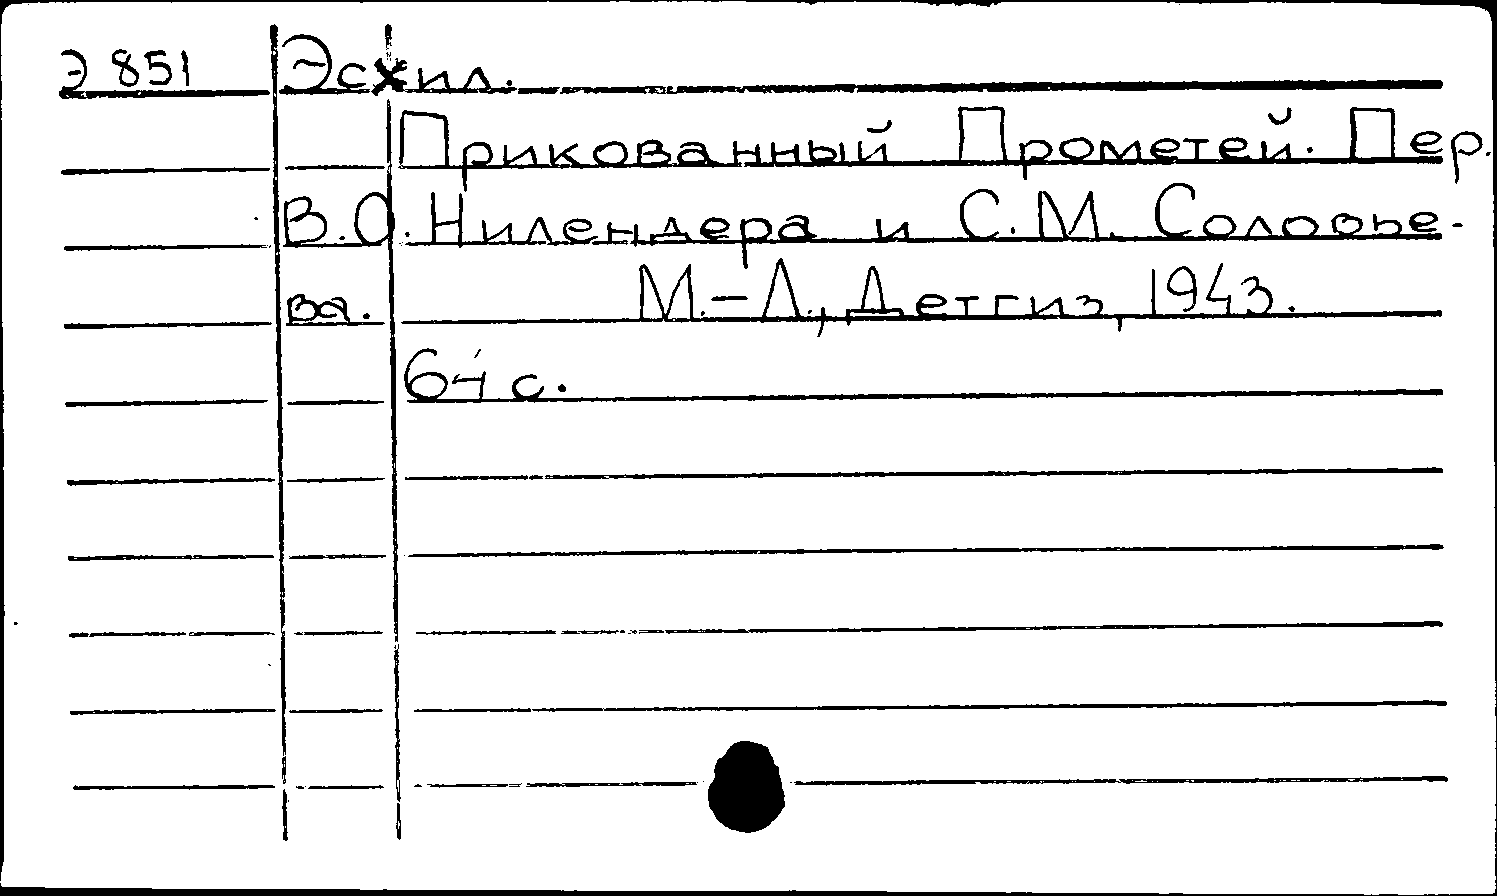 Э 851 Эсхил.
Прикованный Прометей. Пер.
В.О. Нилендера и С.М. Соловье-
ва. М.-Л., Детгиз, 1943.
64 с.